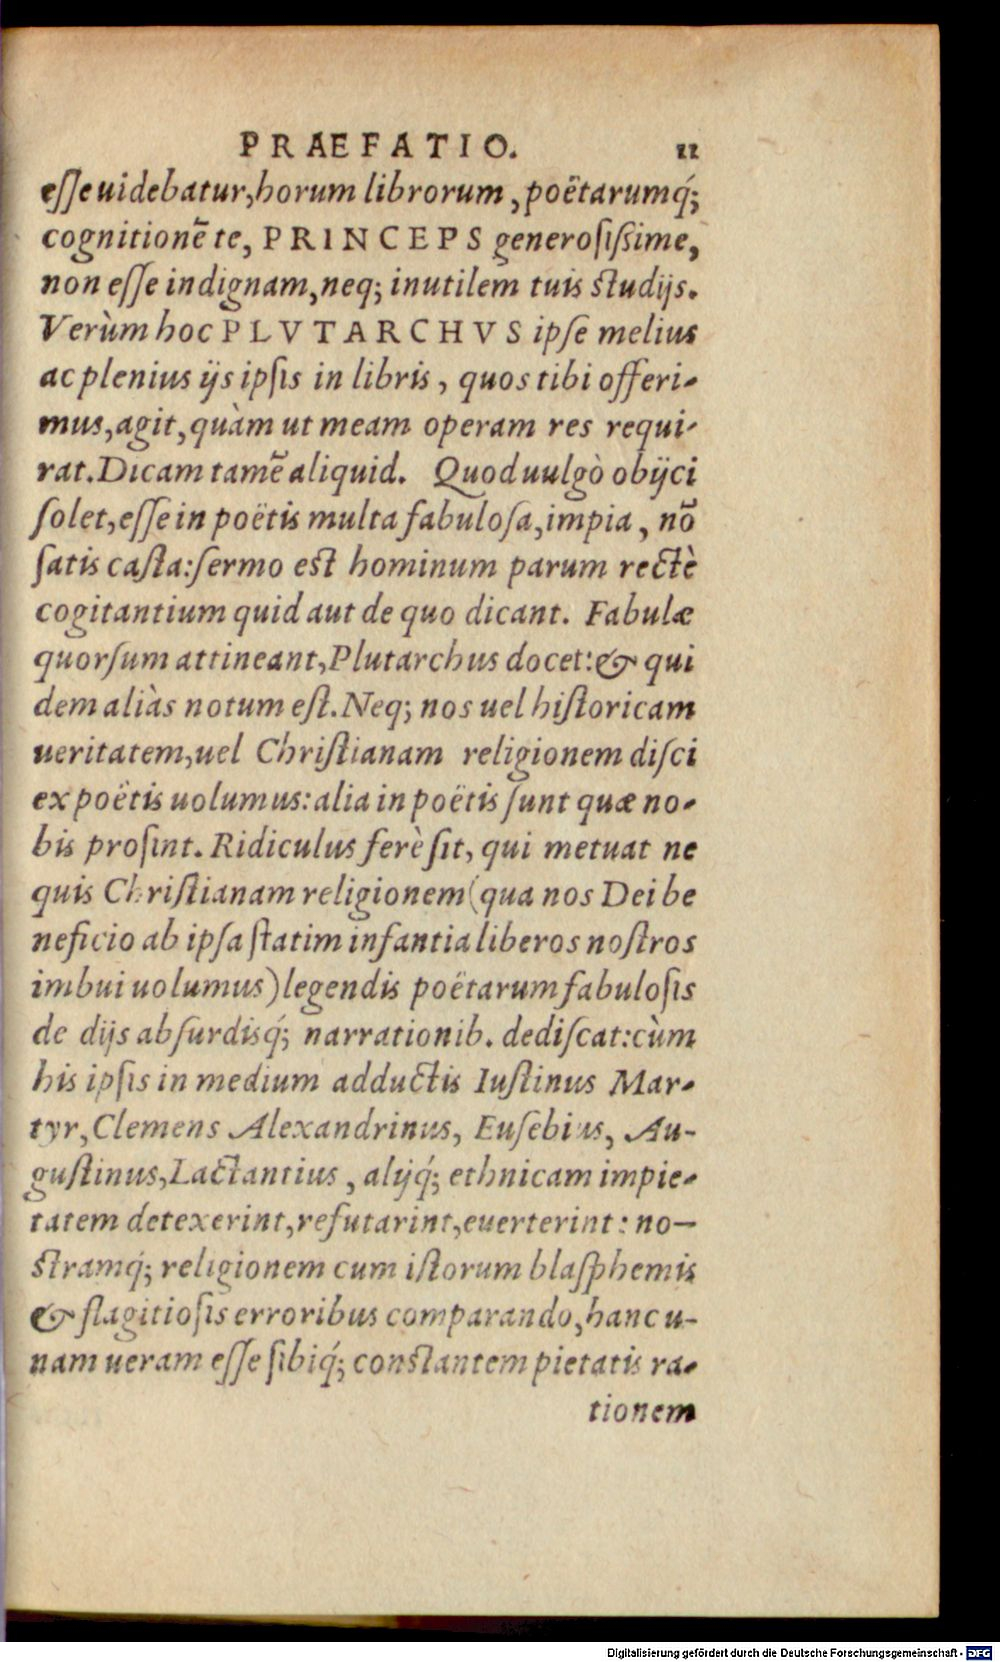 PRAEFATIO. 11
eſſe uidebatur, horum librorum, poëtarumq́;
cognitionē te, PRINCEPS generoſiſsime,
non eſſe indignam, neq; inutilem tuis ſtudijs.
Verùm hoc PLVTARCHVS ipſe melius
ac plenius ijs ipſis in libris, quos tibi offeri-
mus, agit, quàm ut meam operam res requi-
rat. Dicam tamē aliquid. Quod uulgò obijci
ſolet, eſſe in poëtis multa fabuloſa, impia, nō
ſatis caſta: ſermo eſt hominum parum rectè
cogitantium quid aut de quo dicant. Fabulæ
quorſum attineant, Plutarchus docet: & qui
dem aliàs notum eſt. Neq; nos uel hiſtoricam
ueritatem, uel Chriſtianam religionem diſci
ex poëtis uolumus: alia in poëtis ſunt quæ no-
bis proſint. Ridiculus ferè ſit, qui metuat ne
quis Chriſtianam religionem (qua nos Dei be
neficio ab ipſa ſtatim infantia liberos noſtros
imbui uolumus) legendis poëtarum fabuloſis
de dijs abſurdisq́; narrationib. dediſcat: cùm
his ipſis in medium adductis Iuſtinus Mar-
tyr, Clemens Alexandrinus, Euſebius, Au-
guſtinus, Lactantius, alijq́; ethnicam impie-
tatem detexerint, refutarint, euerterint: no-
ſtramq́; religionem cum iſtorum blaſphemis
& flagitioſis erroribus comparando, hanc u-
nam ueram eſſe ſibiq́; conſtantem pietatis ra-
tionem
Digitalisierung gefördert durch die Deutsche Forschungsgemeinschaft - DFG